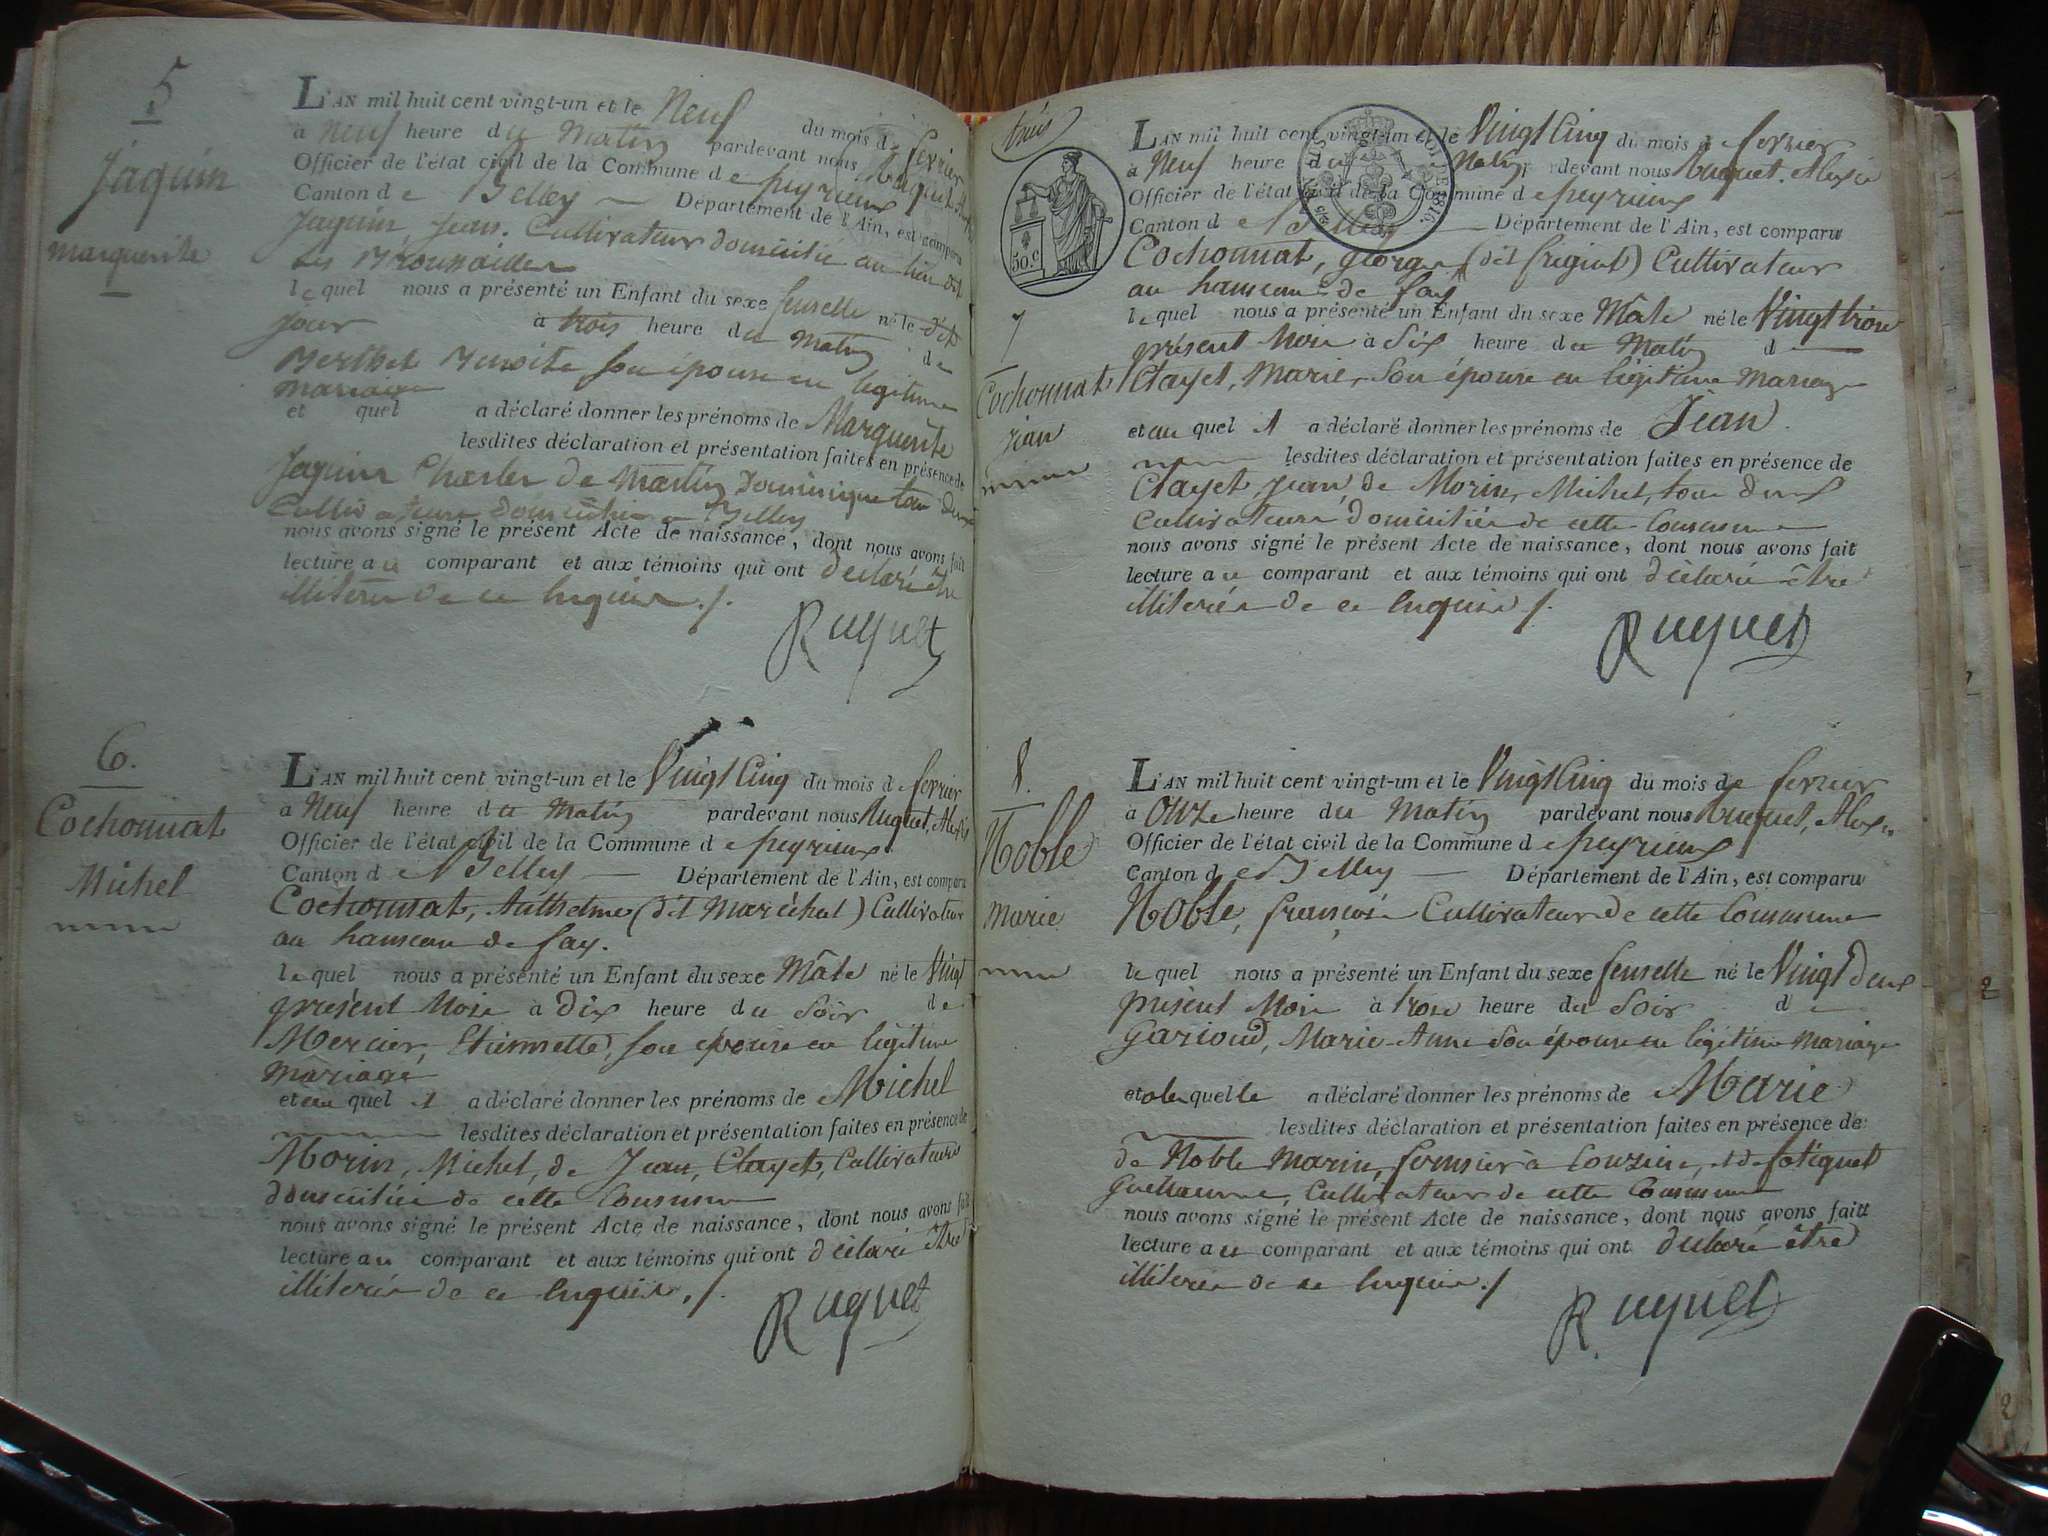 5
Jaquin
marguerite
L'AN mil huit cent vingt-un et le Neuf du mois de fevrier
à Neuf heure du Matin pardevant nous Ruquet
Officier de l'état civil de la Commune de peyrieux
Canton de Belley Département de l'Ain, est comparu
Jaquin, Jean. Cultivateur domicilié au lieu dit
les Brousailles
lequel nous a présenté un Enfant du sexe femelle né le dit
jour à trois heure du Matin de
Berthet Benoite son épouse en légitime
mariage
et quel a déclaré donner les prénoms de Marguerite
lesdites déclaration et présentation faites en présence de
Jaquin Charles de Martin Dominique tous deux
Cultivateurs domiciliés a Belley
nous avons signé le présent Acte de naissance, dont nous avons fait
lecture au comparant et aux témoins qui ont déclaré être
illiterés de ce Enquis ./.
Ruquet
6.
Cochonnat
Michel
L'AN mil huit cent vingt-un et le Vingt Cinq du mois de fevrier
à Neuf heure du Matin pardevant nous Ruquet, Alexis
Officier de l'état civil de la Commune de peyrieux
Canton de Belley Département de l'Ain, est comparu
Cochonnat, Anthelme (dit Maréchal) Cultivateur
au hameau de fay.
lequel nous a présenté un Enfant du sexe Mâle né le Vingt
présent Mois à Dix heure du Soir de
Mercier, Etiennette, son épouse en légitime
mariage
et au quel il a déclaré donner les prénoms de Michel
lesdites déclaration et présentation faites en présence de
Morin, Michel, de Jean, Clayet, Cultivateurs
domiciliés de cette Commune
nous avons signé le présent Acte de naissance, dont nous avons fait
lecture au comparant et aux témoins qui ont déclaré être
illiterés de ce Enquis ./.
Ruquet
trois
50.c
L'AN mil huit cent vingt-un et le Vingt Cinq du mois de fevrier
à Neuf heure du Matin pardevant nous Ruquet. Alexis
Officier de l'état civil de la Commune de peyrieux
Canton de Belley Département de l'Ain, est comparu
Cochonnat, George (dit frigiat) Cultivateur
au hameau de fay
7
Cochonnat
jean
lequel nous a présenté un Enfant du sexe Mâle né le Vingt trois
présent Mois à Six heure du Matin d
Clayet, Marie, son épouse en légitime Mariage
et au quel il a déclaré donner les prénoms de Jean.
lesdites déclaration et présentation faites en présence de
Clayet, Jean, de Morin, Michel, tous deux
Cultivateurs domiciliés de cette Commune
nous avons signé le présent Acte de naissance, dont nous avons fait
lecture au comparant et aux témoins qui ont déclaré être
illiterés de ce Enquis ./.
Ruquet
8.
Noble
Marie
L'AN mil huit cent vingt-un et le Vingt Cinq du mois de fevrier
à Onze heure du Matin pardevant nous Ruquet, Alexis
Officier de l'état civil de la Commune de peyrieux
Canton de Belley Département de l'Ain, est comparu
Noble, françois Cultivateur de cette Commune
le quel nous a présenté un Enfant du sexe femelle né le Vingt deux
présent Mois à trois heure du Soir d
Garioud, Marie-Anne son épouse en légitime Mariage
et a la quelle a déclaré donner les prénoms de Marie
lesdites déclaration et présentation faites en présence de
de Noble Marin, fermier à Couzieu, et de
Guillaume, Cultivateur de cette Commune
nous avons signé le présent Acte de naissance, dont nous avons fait
lecture au comparant et aux témoins qui ont déclaré être
illiterés de ce Enquis ./
Ruquet
2
2